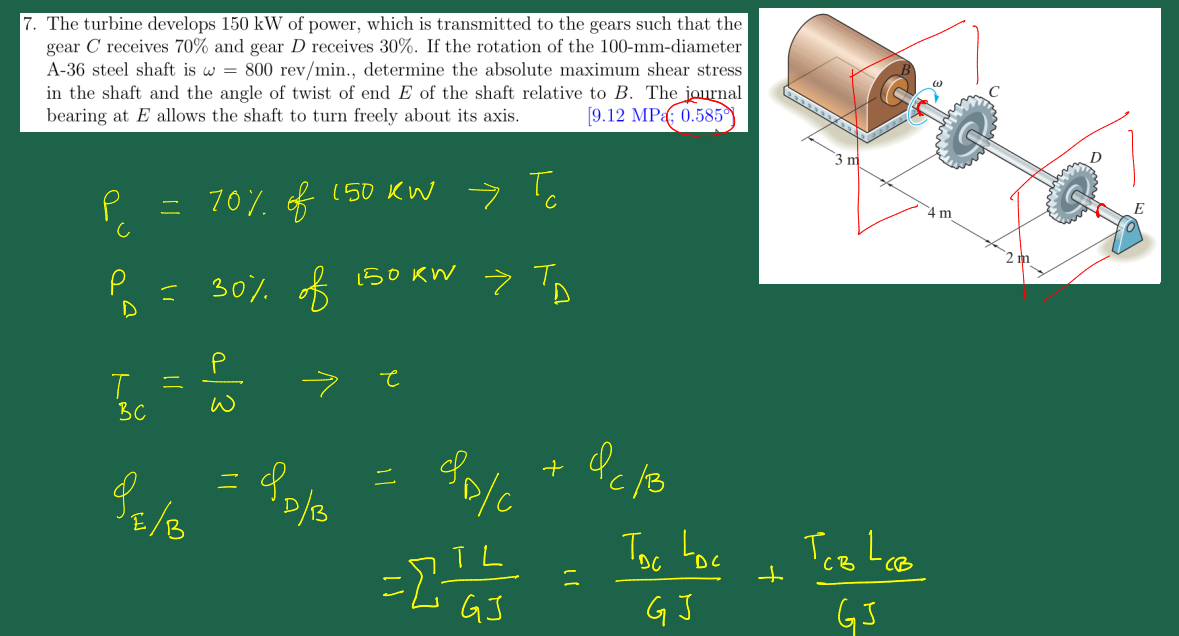 7. The turbine develops 150 kW of power, which is transmitted to the gears such that the
gear C receives 70% and gear D receives 30%. If the rotation of the 100-mm-diameter
A-36 steel shaft is ω = 800 rev/min., determine the absolute maximum shear stress
in the shaft and the angle of twist of end E of the shaft relative to B. The journal
bearing at E allows the shaft to turn freely about its axis. [9.12 MPa; 0.585°]
B
ω
C
3 m
D
4 m
E
2 m
P_C = 70% of 150 KW → T_C
P_D = 30% of 150 KW → T_D
T_BC = P/W → τ
φ_E/B = φ_D/B = φ_D/C + φ_C/B
= Σ TL/GJ = T_DC L_DC/GJ + T_CB L_CB/GJ